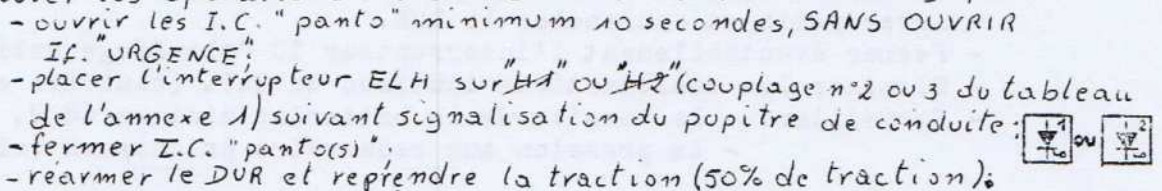 - ouvrir les I.C. "panto" minimum 10 secondes, SANS OUVRIR
If. "URGENCE";
- placer l'interrupteur ELH sur "H1" ou "H2" (couplage n°2 ou 3 du tableau
de l'annexe 1) suivant signalisation du pupitre de conduite: 1 ou 2
- fermer I.C. "panto(s)".
- réarmer le DUR et reprendre la traction (50% de traction);